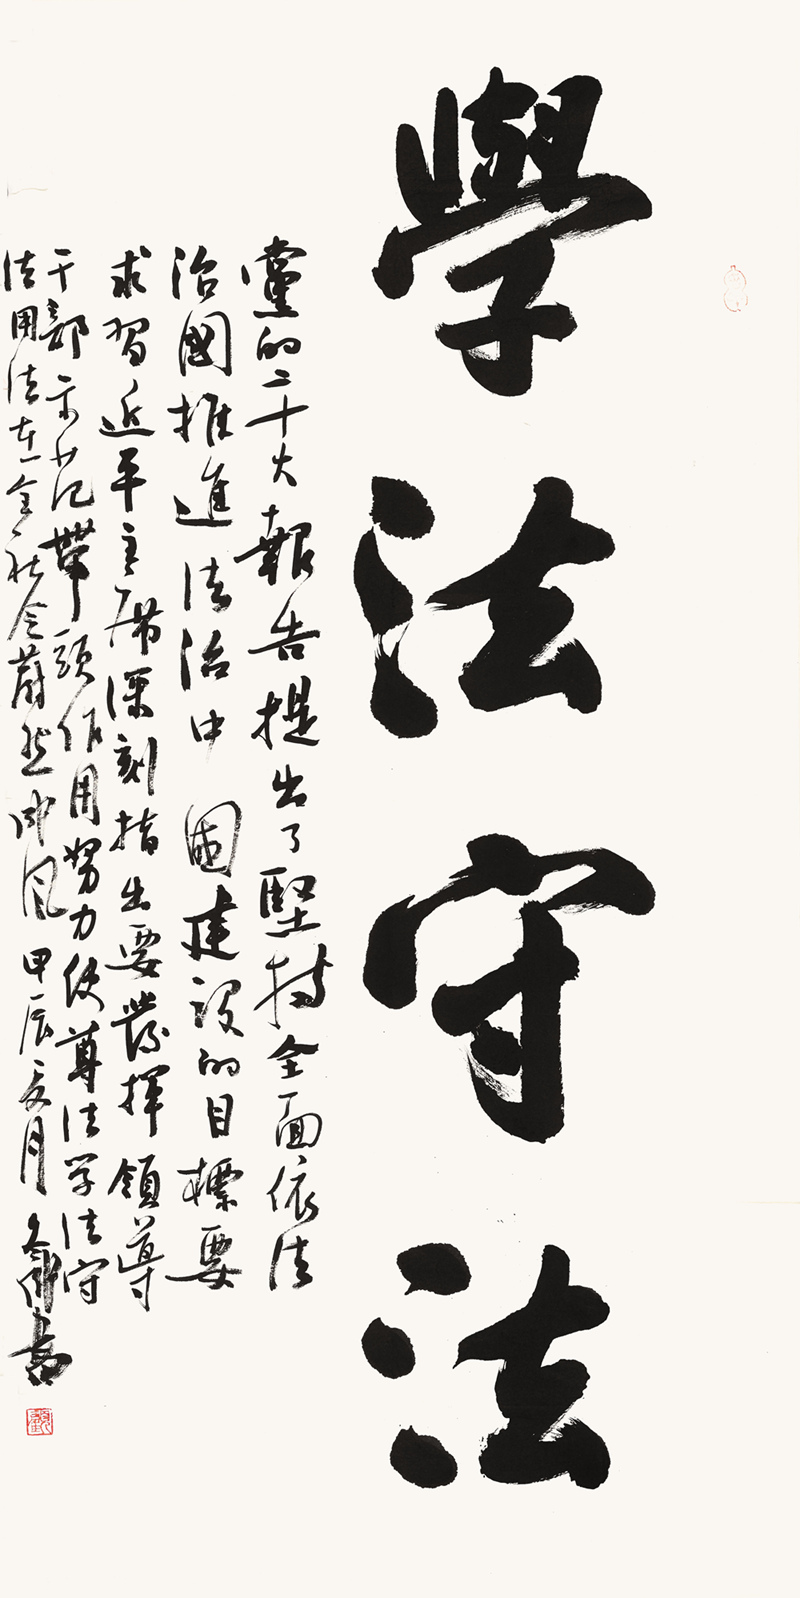 學法守法
黨的二十大報告提出了堅持全面依法
治國推進法治中國建設的目標要
求習近平主席深刻指出要發揮領導
干部示范帶頭作用努力使尊法学法守
法用法在全社会蔚然成風甲辰夏月